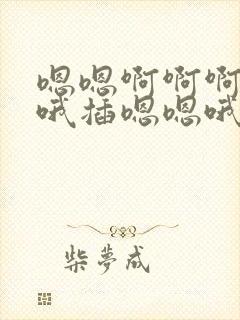 嗯嗯啊啊啊
哦插嗯嗯哦
柴夢成